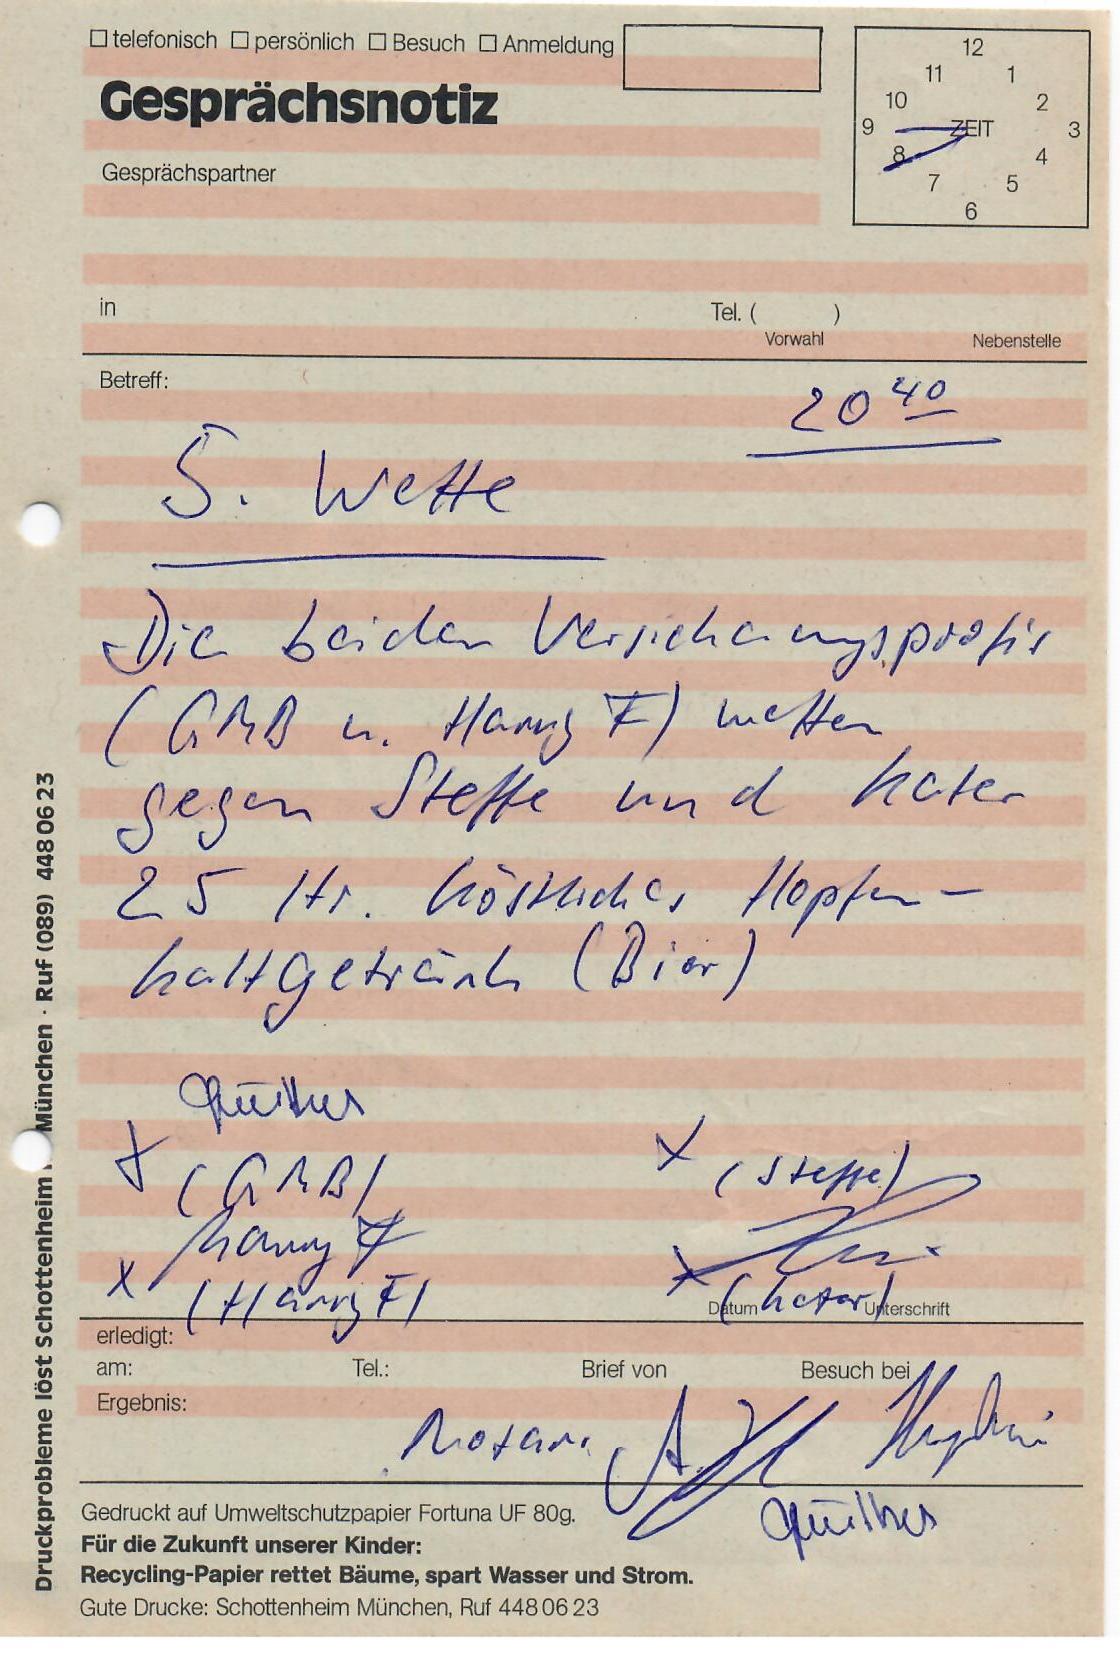 ☐ telefonisch ☐ persönlich ☐ Besuch ☐ Anmeldung
Gesprächsnotiz
Gesprächspartner
12
11 1
10 2
9 ZEIT 3
8 4
7 5
6
in Tel. ( )
Vorwahl Nebenstelle
Betreff:
20 40
5. Wette
Die beiden Versicherungsprofis
(GMB u. Harry F) wetten
gegen Steffe und Kater
25 ltr. köstliches Hopfen-
kaltgetränk (Bier)
Günther
X (GMB) X (Steffe)
Harry F
X (Harry F) X (Kater)
Datum Unterschrift
erledigt:
am: Tel.: Brief von Besuch bei
Ergebnis:
Notar:
Günther
Gedruckt auf Umweltschutzpapier Fortuna UF 80g.
Für die Zukunft unserer Kinder:
Recycling-Papier rettet Bäume, spart Wasser und Strom.
Gute Drucke: Schottenheim München, Ruf 448 06 23
Druckprobleme löst Schottenheim München · Ruf (089) 448 06 23